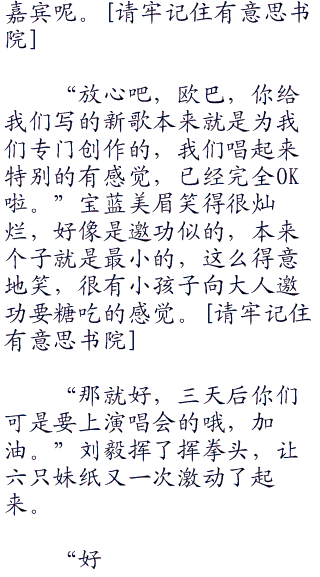 嘉宾呢。[请牢记住有意思书
院]
“放心吧，欧巴，你给
我们写的新歌本来就是为我
们专门创作的，我们唱起来
特别的有感觉，已经完全OK
啦。”宝蓝美眉笑得很灿
烂，好像是邀功似的，本来
个子就是最小的，这么得意
地笑，很有小孩子向大人邀
功要糖吃的感觉。[请牢记住
有意思书院]
“那就好，三天后你们
可是要上演唱会的哦，加
油。”刘毅挥了挥拳头，让
六只妹纸又一次激动了起
来。
“好